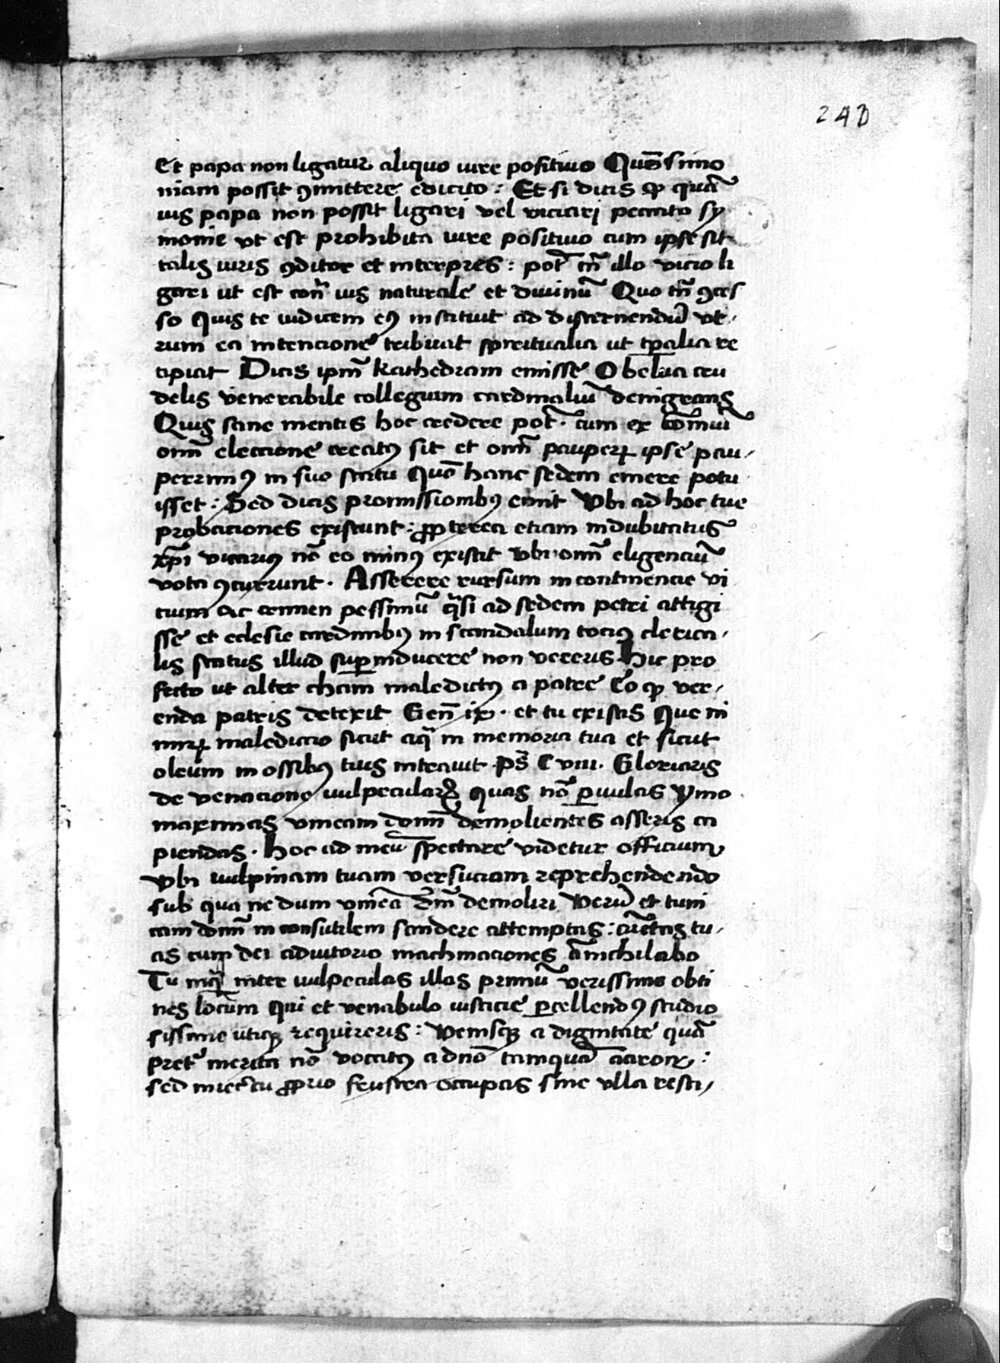 240
Et papa non ligatur aliquo iure positiuo Quō simo
niam possit ꝯmittere edicito : Et si dicis ꝙ quāꝰ
uis papa non possit ligari vel viciari peccato sy
monie vt est prohibita iure positiuo cum ipse sit
talis iuris ꝯditor et interpres : pot͛ tn̄ illo vicio li
gari ut est con͛ ius naturale et diuinū Quo tn̄ ꝯces
so Quis te iudicem eꝰ instituit ad discernendū vt
rum ea intencione tribuat spiritualia ut tp̄alia re
cipiat Dicis ip̄m kathedram emisse O belua cru
delis venerabile collegium cardinaliū denigrans
Quis sane mentis hoc credere pot͛ . cum ex cōmuni
om̄i eleccione creatꝰ sit et om̄ pauperꝝ ipse pau
perrimꝰ in suo statu Quō hanc sedem emere potu
isset : Sed dicis promissionibꝰ emit Vbi ad hoc tue
probaciones existunt : ꝓpterea etiam indubitatus
xp̄i vicariꝰ nō eo minꝰ existit vbi om̄ eligenciū
vota ꝯcurrunt . Asserere rursum incontinencie vi
cium ac crimen pessimū q̄si ad sedem petri attigi
sse et ecclesie cardinibꝰ in scandalum tociꝰ clerica
lis status illud suꝑinducere non vereris Hic pro
fecto ut alter cham maledictꝰ a patre Eo ꝙ ver
enda patris detexit Gen̄ ix . et tu existis Que ni
mirꝝ malediccio sicut aq̄ in memoria tua et sicut
oleum in ossibꝰ tuis intrauit . ps̄ C viii . Gloriaris
de venacione vulpecularꝝ quas nō ꝑuulas ymo
maximas vineam domī demolientes asseris ca
piendas . hoc ad meū spectare videtur officium
vbi vulpinam tuam versuciam reprehendendo
sub qua ne dum vineā dn̄i demoliri verū et tuni
cam domī inconsutilem scindere attemptas : as tu
as cum dei adiutorio machinaciones annichilabo
Tu inter vulpeculas illas primū verissime obti
nes locum qui et venabulo iusticie ꝑcellendꝰ studio
sissime utiqꝫ requireris : a dignitate quā
pret͛ merita nō vocatꝰ a dn̄o tamquā aaron :
sed ꝓprio frustra occupas sine vlla resti